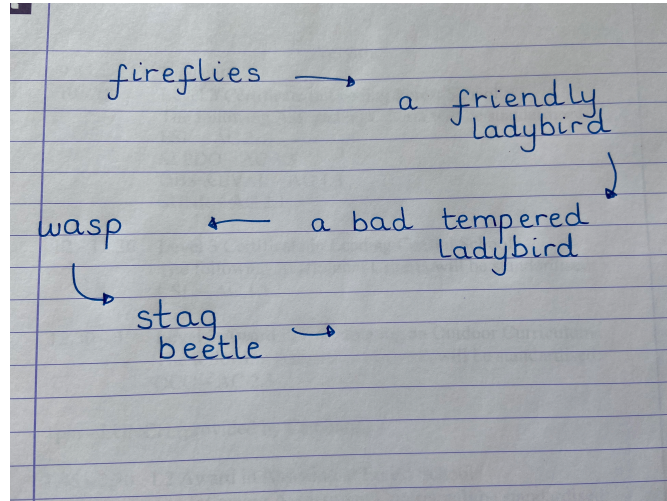 fireflies →
a friendly
ladybird
wasp ← a bad tempered
ladybird
stag
beetle →